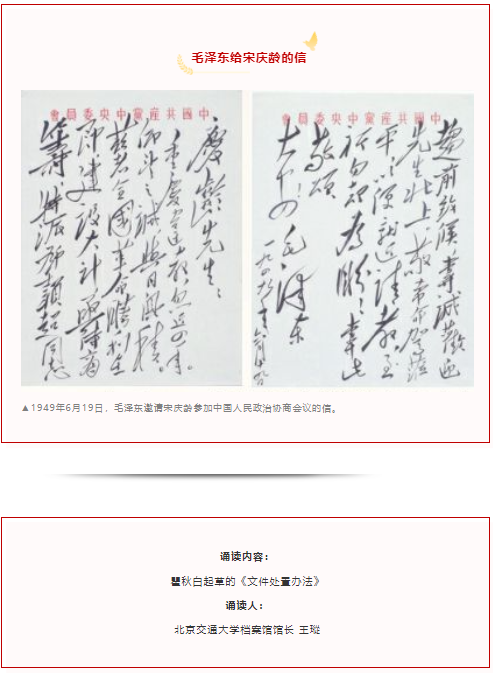 毛泽东给宋庆龄的信
中國共產黨中央委員會
慶齡先生：
重慶違教，忽近四年。
仰望之誠，與日俱積。
茲者全國革命勝利在
即，建設大計，亟待商
籌，特派鄧穎超同志
中國共產黨中央委員會
趨前致候，專誠歡迎
先生北上。敬希命駕蒞
平，以便就近請教，至
祈勿却為盼！專此
敬頌
大安！毛澤東
一九四九年六月十九日
▲1949年6月19日，毛泽东邀请宋庆龄参加中国人民政治协商会议的信。
诵读内容：
瞿秋白起草的《文件处置办法》
诵读人：
北京交通大学档案馆馆长 王璇